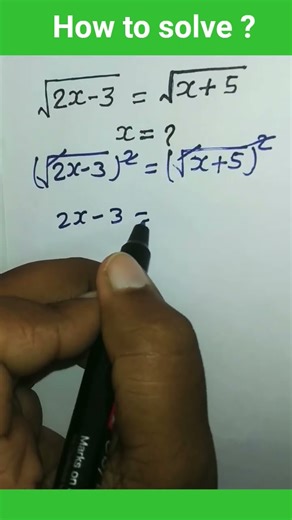 How to solve ?
√2x-3 = √x+5
x = ?
(√2x-3)² = (√x+5)²
2x-3 =
Marks on